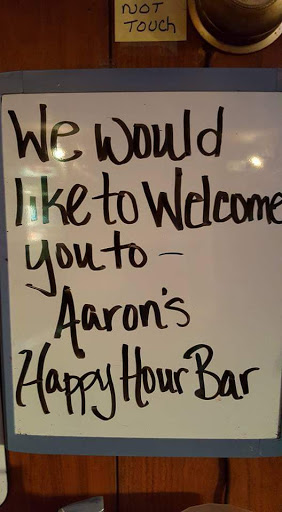 NOT
TOUCH
We would
like to Welcome
you to -
Aaron's
Happy Hour Bar